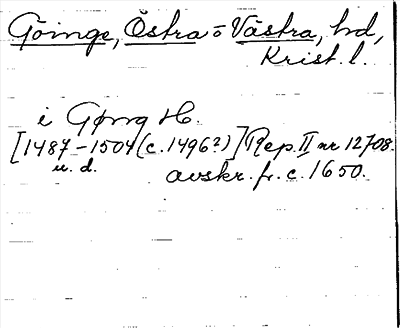 Göinge, Östra o Västra, hd,
Krist. l.
i Gøng H.
[1487-1504 (c. 1496?)] Rep. II nr 12708.
u. d.
avskr. fr. c. 1650.